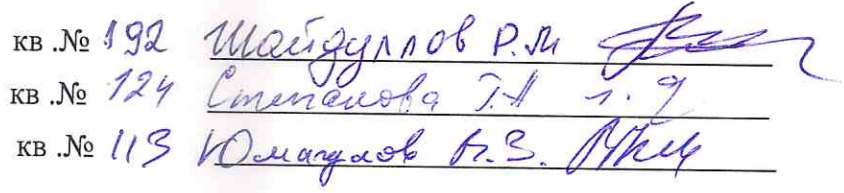 кв .№ 192 Шайдуллов Р.М
кв .№ 124 Степанова Т.А
кв .№ 113 Юмагулов